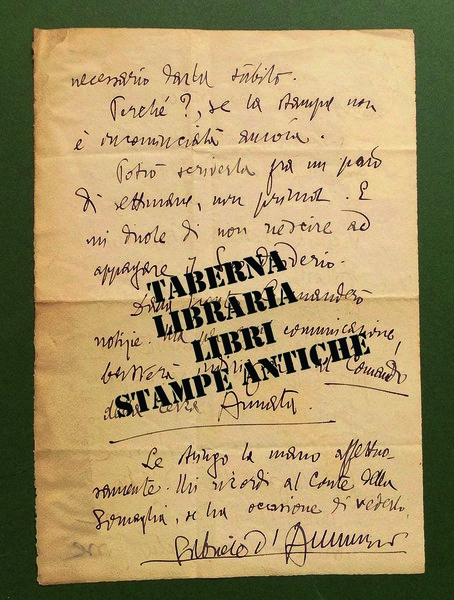 necessario darla subito.
Perché?, se la stampa non
è incominciata ancora.
Potrò scriverla fra un paio
di settimane, non prima. E
mi duole di non riescire ad
appagare il Suo desiderio.
manderò
notizie. comunicazione,
basterà il Comando
della terza Armata.
Le stringo la mano affettuo-
samente. Mi ricordi al Conte della
Somaglia, se ha occasione di vederlo.
Gabriele d'Annunzio
TABERNA
LIBRARIA
LIBRI
STAMPE ANTICHE